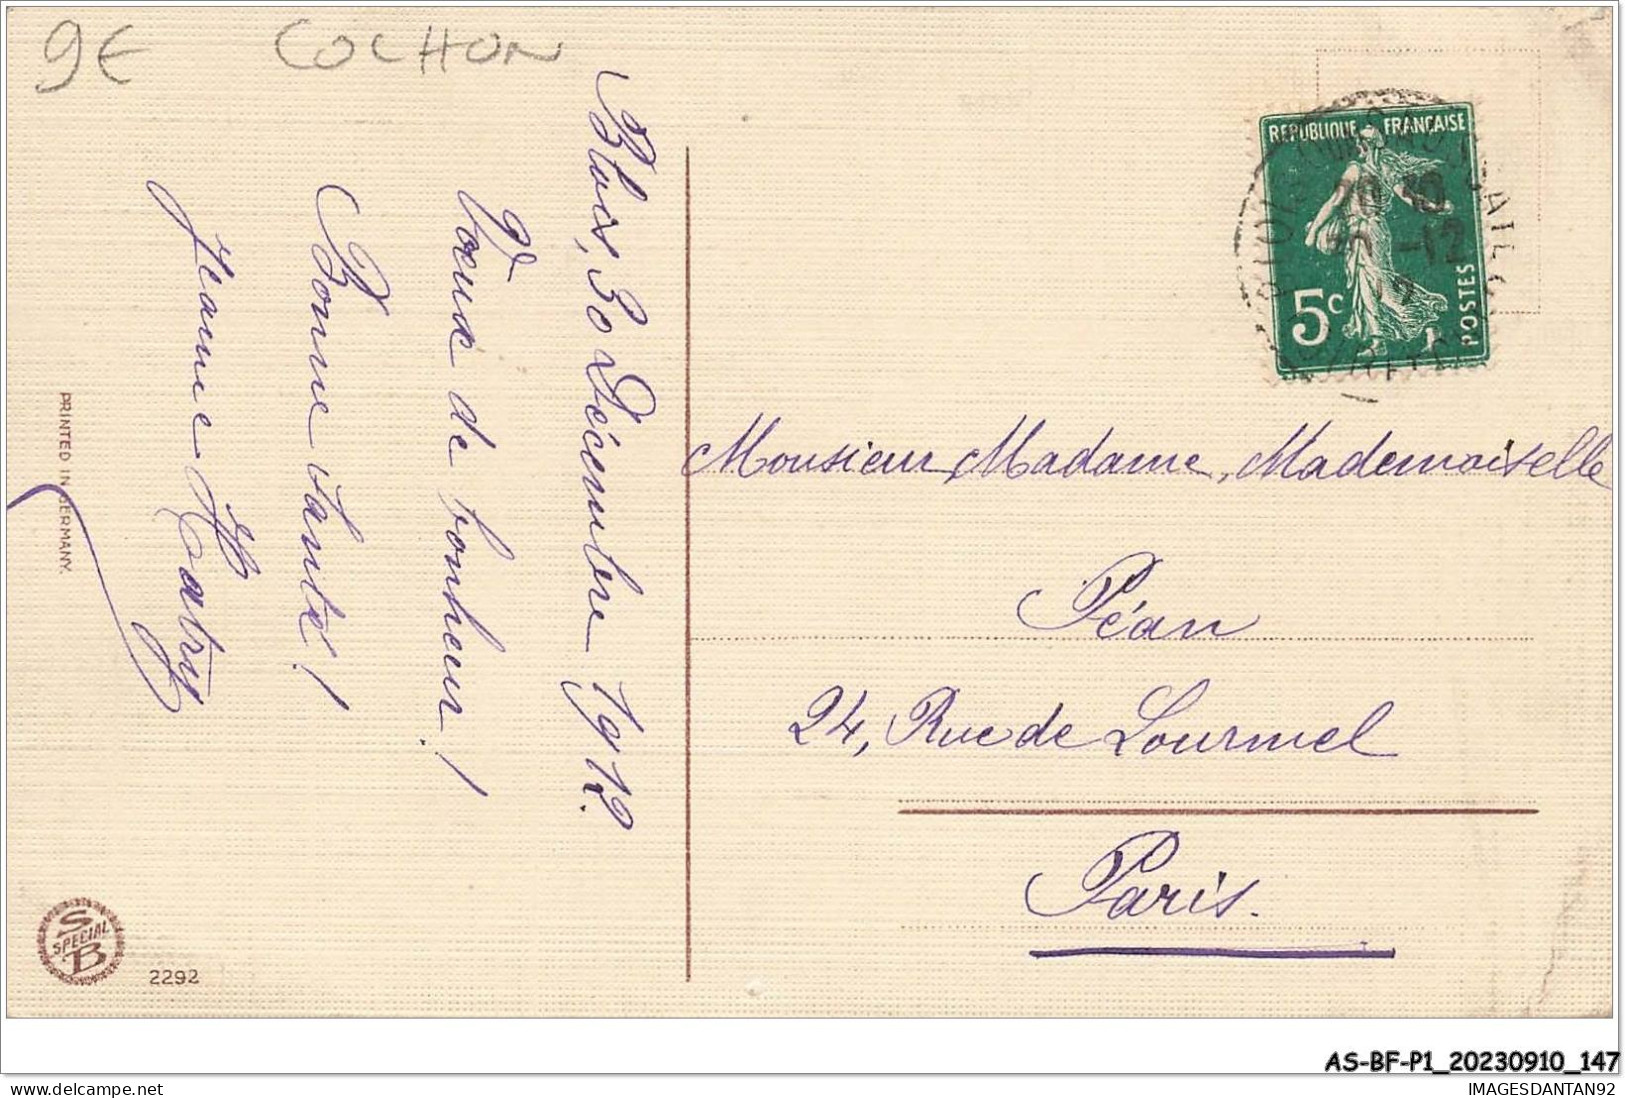 9€ COCHON
Blois, 30 Décembre 1912.
Voeux de bonheur!
Bonne santé!
Jeanne
PRINTED IN GERMANY.
S
SPECIAL
B
2292
REPUBLIQUE FRANÇAISE
5c
POSTES
-12
Monsieur, Madame, Mademoiselle
Péan
24, Rue de Lourmel
Paris.
AS-BF-P1_20230910_147
© delcampe.net
IMAGESDANTAN92